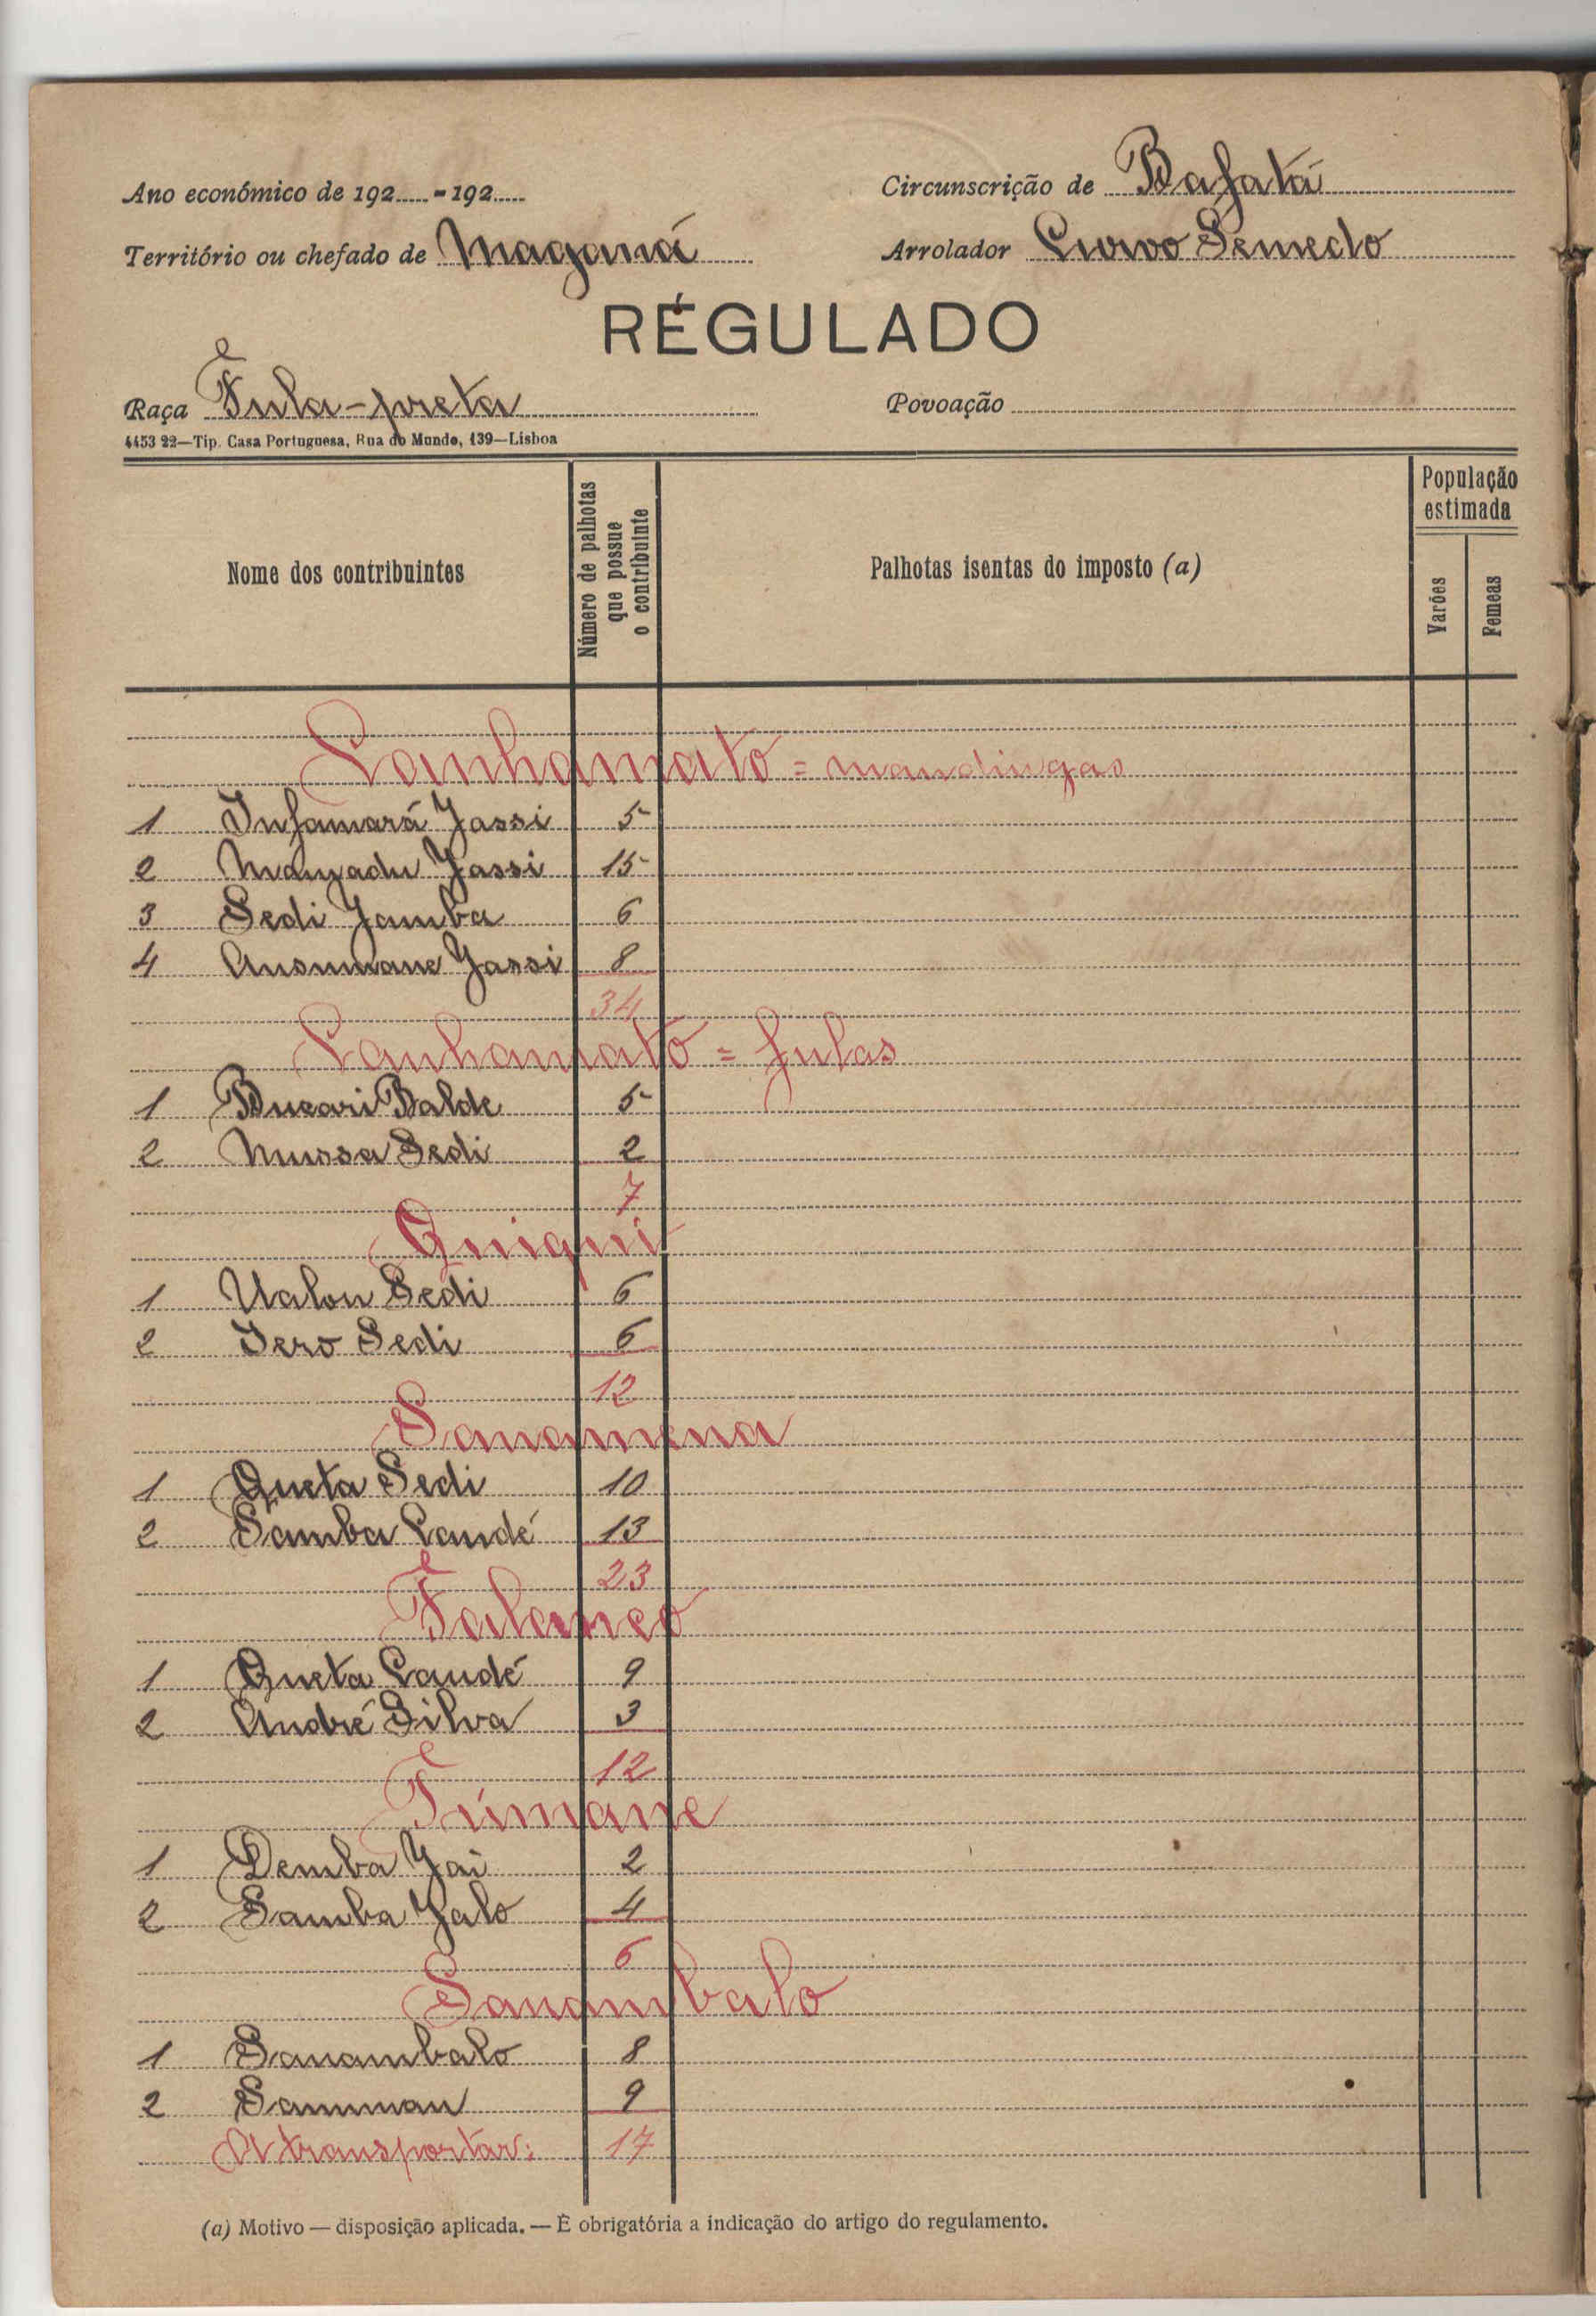 Ano económico de 192.....-192.....
Circunscrição de Bafatá
Território ou chefado de Maganá
Arrolador Livro Semedo
RÉGULADO
Raça Fula-preta
Povoação
4453 22—Tip. Casa Portuguesa, Rua do Mundo, 139—Lisboa
Nome dos contribuintes
Número de palhotas que possue o contribuinte
Palhotas isentas do imposto (a)
População estimada
Varões
Femeas
Canhamato = mandingas
1 Infamará Jassi 5
2 Mamadu Jassi 15
3 Sedi Jamba 6
4 Ansumane Jassi 8
34
Canhamato = fulas
1 Bucari Balde 5
2 Mussa Sedi 2
7
Quiqui
1 Ualou Sedi 6
2 Iero Sedi 6
12
Sanamena
1 Queta Sedi 10
2 Samba Candé 13
23
Falanco
1 Queta Candé 9
2 André Silva 3
12
Túmane
1 Demba Jai 2
2 Samba Jalo 4
6
Sanambalo
1 Sanambalo 8
2 9
A transportar: 17
(a) Motivo — disposição aplicada. — É obrigatória a indicação do artigo do regulamento.